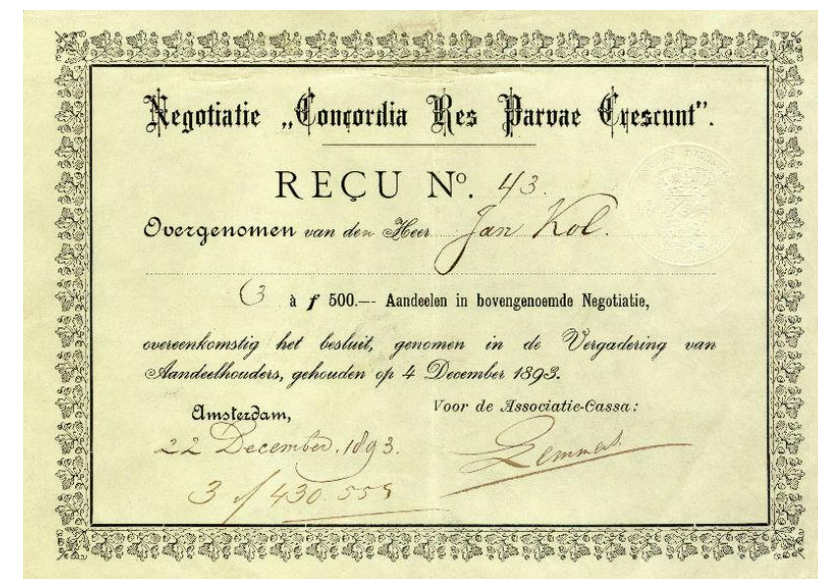 Negotiatie „Concordia Res Parvae Crescunt".
REÇU Nº. 43.
Overgenomen van den Heer Jan Kol.
3 à ƒ 500.— Aandeelen in bovengenoemde Negotiatie,
overeenkomstig het besluit, genomen in de Vergadering van
Aandeelhouders, gehouden op 4 December 1893.
Amsterdam,
Voor de Associatie-Cassa:
22 December. 1893.
3 430.555